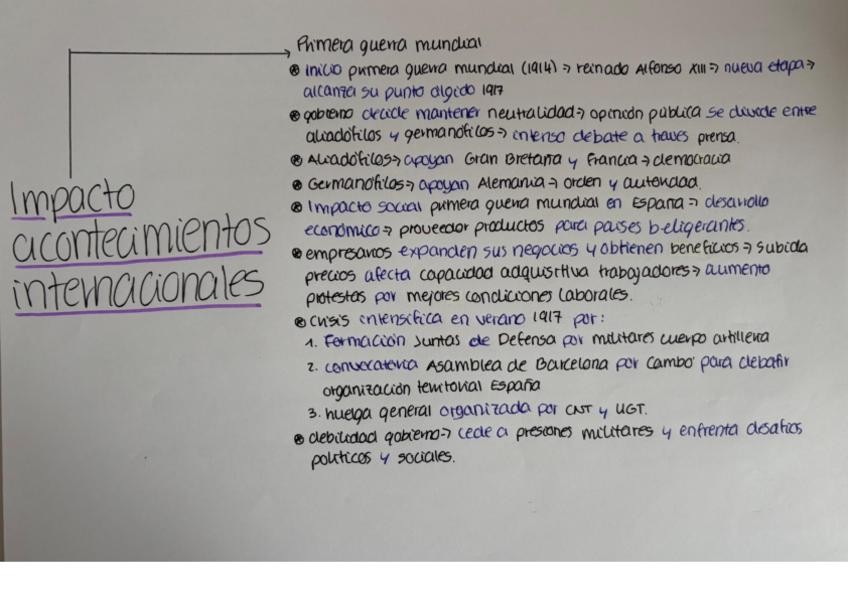 Primera guerra mundial
inicio primera guerra mundial (1914) → reinado Alfonso XIII → nueva etapa →
alcanza su punto álgido 1917
gobierno decide mantener neutralidad → opinión pública se divide entre
aliadófilos y germanófilos → intenso debate a través prensa.
Aliadófilos → apoyan Gran Bretaña y Francia → democracia
Germanófilos → apoyan Alemania → orden y autoridad.
Impacto social primera guerra mundial en España → desarrollo
económico → proveedor productos para países beligerantes.
empresarios expanden sus negocios y obtienen beneficios → subida
precios afecta capacidad adquisitiva trabajadores → aumento
protestas por mejores condiciones laborales.
crisis intensifica en verano 1917 por:
1. Formación Juntas de Defensa por militares cuerpo artillería
2. convocatoria Asamblea de Barcelona por Cambó para debatir
organización territorial España
3. huelga general organizada por CNT y UGT.
debilidad gobierno → cede a presiones militares y enfrenta desafíos
políticos y sociales.
Impacto
acontecimientos
internacionales